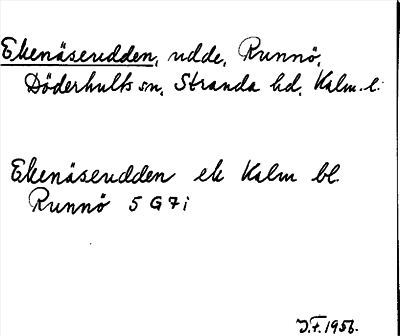 Ekenäseudden, udde, Runnö,
Döderhults sn, Stranda hd, Kalm. l.
Ekenäseudden ek Kalm bl.
Runnö 5 G 7 i
J.F. 1956.